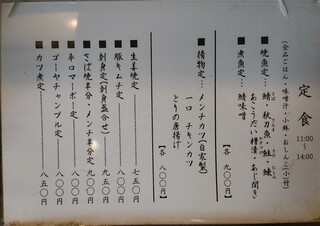 定食 11:00〜14:00
(全品ごはん・味噌汁・小鉢・おしんこ(小)付)
■ 焼魚定… 鯖・秋刀魚・鮭・鰊
あこうだい糟漬・あじ開き
■ 煮魚定… 鯖味噌
【各 九〇〇円】
■ 揚物定… メンチカツ(自家製)
一口チキンカツ
とりの唐揚げ
【各 八〇〇円】
■ 生姜焼定 七五〇円
■ 豚キムチ定 八〇〇円
■ 刺身定(刺身盛合せ) 九五〇円
■ さば焼半分・メンチ半分定 九〇〇円
■ 辛口マーボー定 八〇〇円
■ ゴーヤチャンプル定 八〇〇円
■ カツ煮定 八五〇円